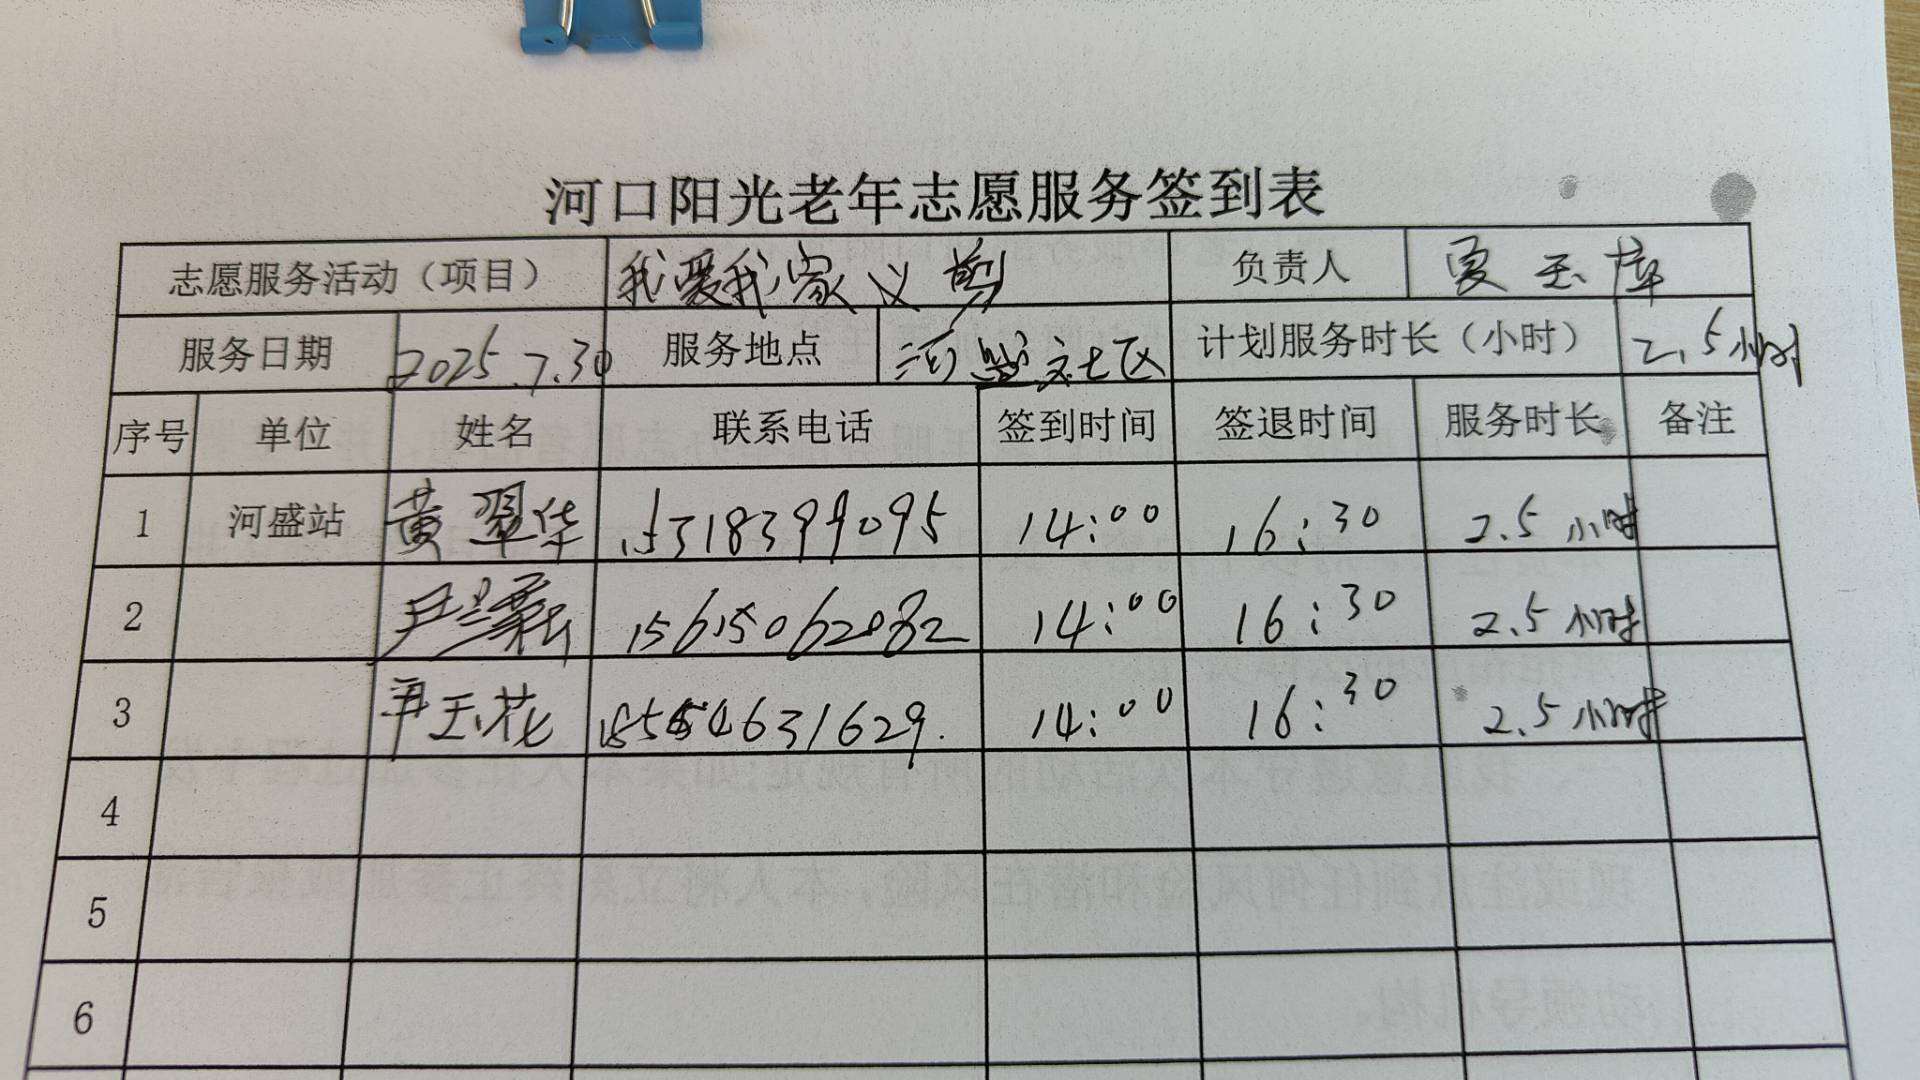 河口阳光老年志愿服务签到表
志愿服务活动（项目） 我爱我家义剪 负责人 夏玉
服务日期 2025.7.30 服务地点 河盛社区 计划服务时长（小时） 2.5小时
序号 单位 姓名 联系电话 签到时间 签退时间 服务时长 备注
1 河盛站 黄翠华 15318399095 14:00 16:30 2.5小时
2 尹兰 15615062082 14:00 16:30 2.5小时
3 尹玉花 4631629 14:00 16:30 2.5小时
4
5
6